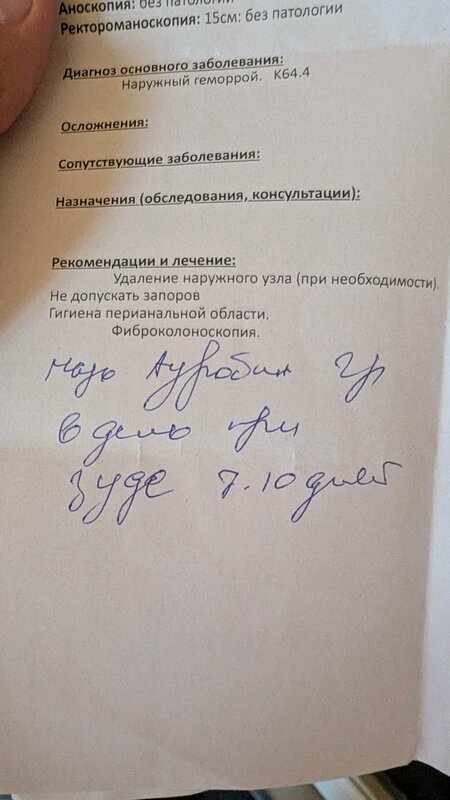 Аноскопия: без патологии
Ректороманоскопия: 15см: без патологии
Диагноз основного заболевания:
Наружный геморрой. K64.4
Осложнения:
Сопутствующие заболевания:
Назначения (обследования, консультации):
Рекомендации и лечение:
Удаление наружного узла (при необходимости).
Не допускать запоров
Гигиена перианальной области.
Фиброколоноскопия.
мазь Ауробин 2р
в день при
зуде 7-10 дней